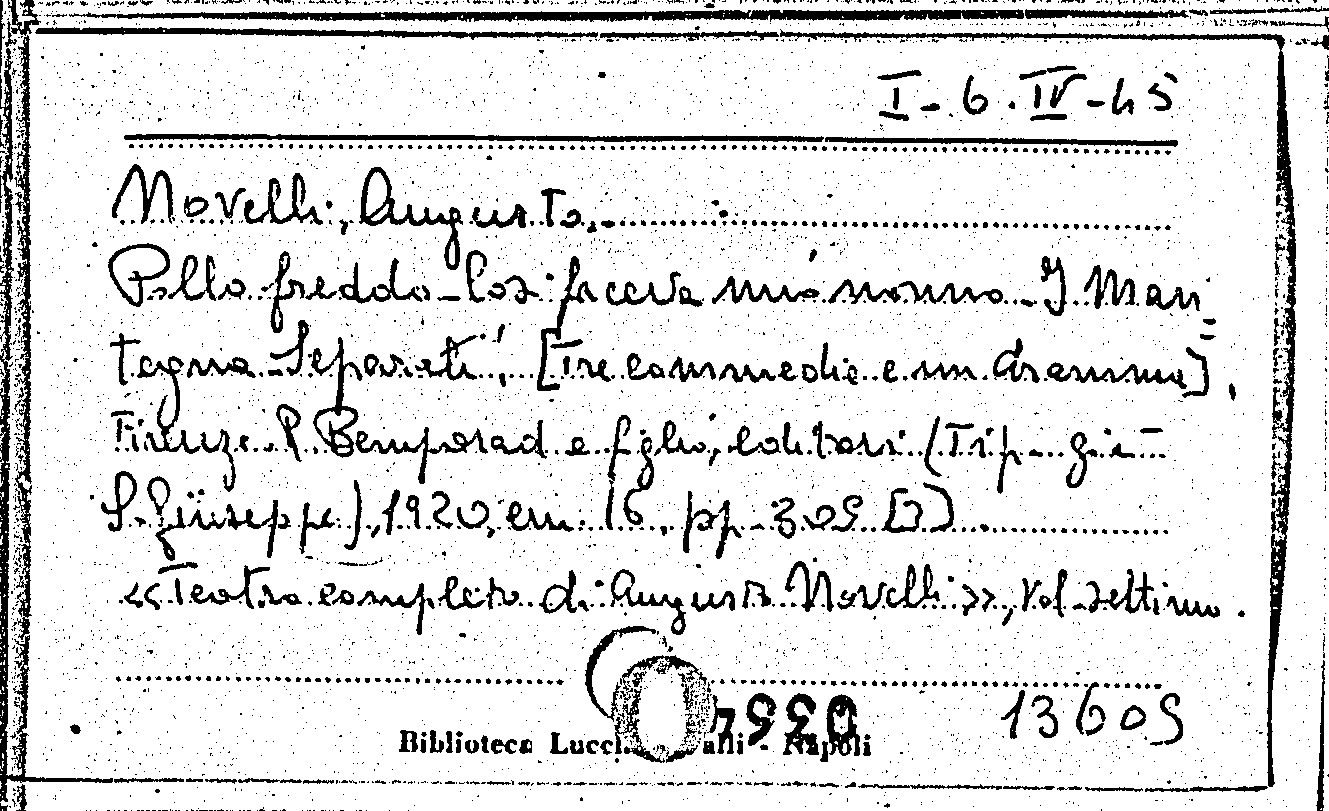 I-6.IV-45
Novelli, Augusto.-
Pollo freddo-Così faceva mio nonno-I Man=
tegna-Separati, [Tre commedie e un dramma],
Firenze. R. Bemporad e figlio, editori (Tip. già
S. Giuseppe), 1920, in 16, pp. 305 [3].
<<Teatro completo di Augusto Novelli>>, vol. settimo.
13605
Biblioteca Napoli